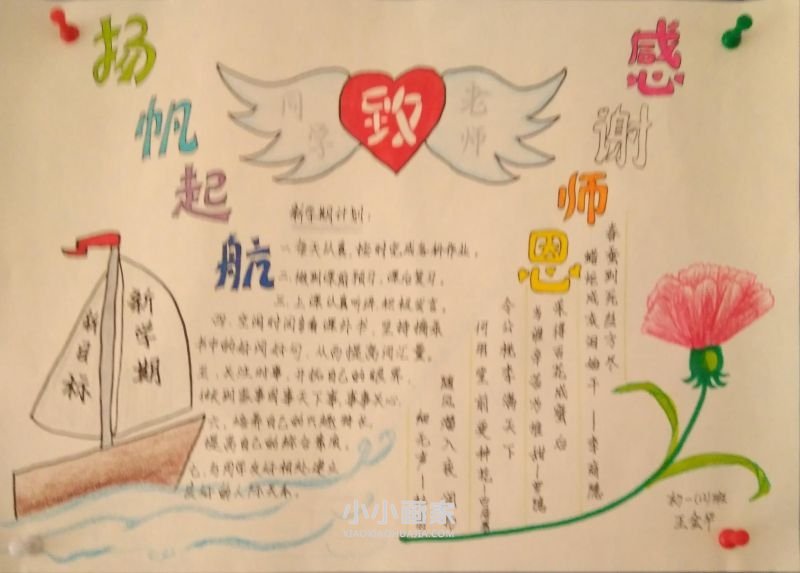 扬帆起航
同学
致
老师
感谢师恩
新学期计划：
一.每天认真,按时完成各科作业。
二.做到课前预习,课后复习。
三.上课认真听讲,积极发言。
四.空闲时间多看课外书,坚持摘录
书中的好词好句,从而提高词汇量。
五.关注时事,开拓自己的眼界,
做到家事国事天下事,事事关心。
六.培养自己的兴趣特长,
提高自己的综合素质。
七.与同学友好相处,建立
良好的人际关系。
新学期
我目标
春蚕到死丝方尽
蜡炬成灰泪始干——李商隐
采得百花成蜜后
为谁辛苦为谁甜——罗隐
令公桃李满天下
何用堂前更种花——白居易
随风潜入夜
细无声——
初一(1)班
小小画家
XIAOXIAOHUAJIA.COM